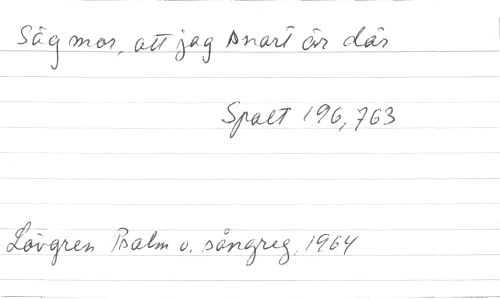 Säg mor, att jag snart är där
Spalt 196, 763
Lövgren Psalm o. sångreg. 1964